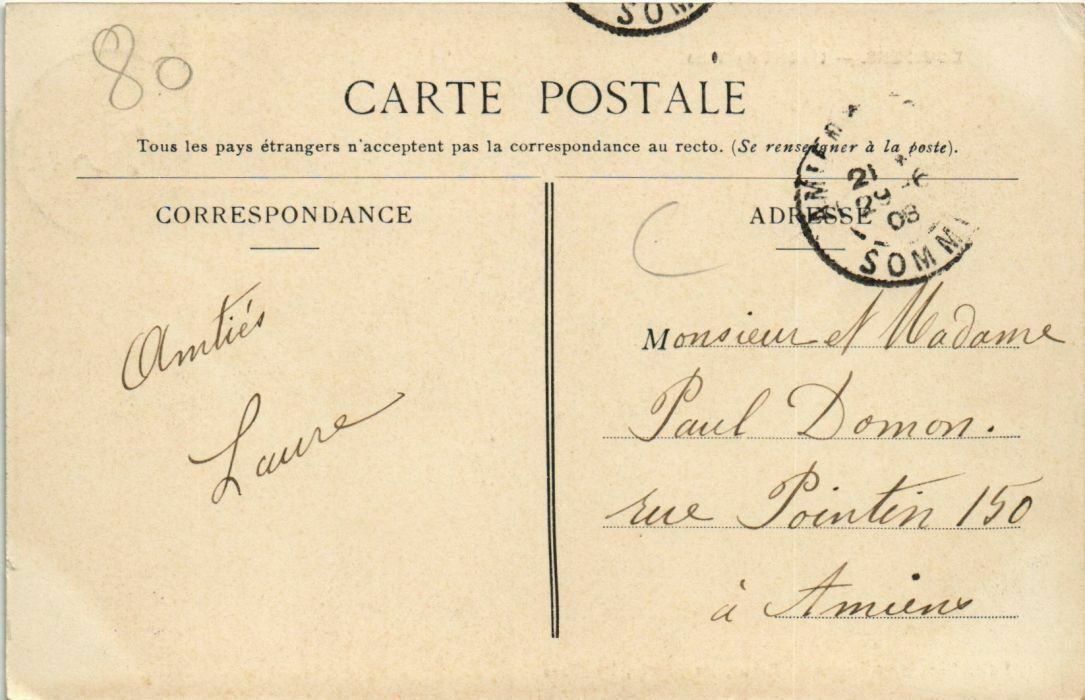 SOM
80
CARTE POSTALE
Tous les pays étrangers n'acceptent pas la correspondance au recto. (Se renseigner à la poste).
CORRESPONDANCE
Amtiés
Laure
ADRESSE
21
08
SOMM
Monsieur et Madame
Paul Domon.
rue Pointin 150
à Amiens